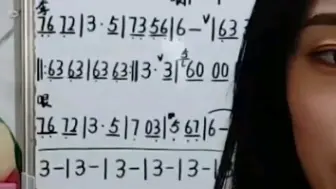 7̲6̲ 7̲2̲|3·5̲|7̲3̲5̲6̲|6–ᵛ|6̲3̲
‖:6̲3̲ 6̲3̲|6̲3̲ 6̲3̲‖3·ᵛ3̲|6̲0̲ 0̲0̲
哏
7̲6̲ 7̲2̲|3·5̲|7 0̲3̲|5 6̲7̲|6–
3–|3–|3–|3–|3–|